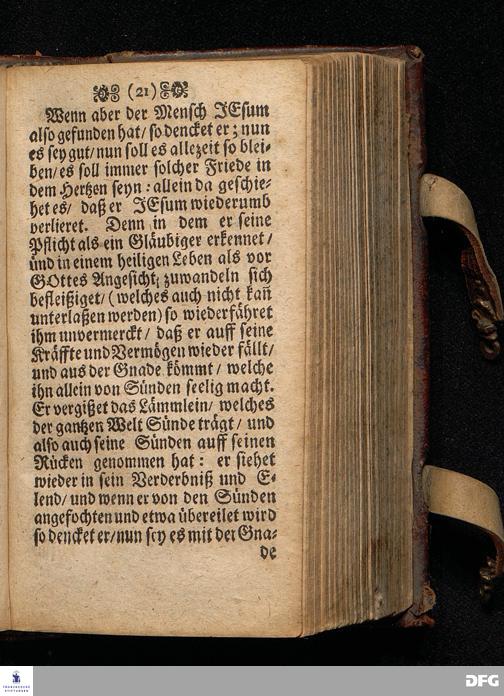 (21)
Wenn aber der Mensch JEsum
also gefunden hat/ so dencket er; nun
es sey gut/ nun soll es allezeit so blei-
ben/ es soll immer solcher Friede in
dem Hertzen seyn: allein da geschie-
het es/ daß er JEsum wiederumb
verlieret. Denn in dem er seine
Pflicht als ein Gläubiger erkennet/
und in einem heiligen Leben als vor
GOttes Angesicht zuwandeln sich
befleißiget/ (welches auch nicht kan̄
unterlaßen werden) so wiederfähret
ihm unvermerckt/ daß er auff seine
Kräffte und Vermögen wieder fällt/
und aus der Gnade kömmt/ welche
ihn allein von Sünden seelig macht.
Er vergißet das Lämmlein/ welches
der gantzen Welt Sünde trägt/ und
also auch seine Sünden auff seinen
Rücken genommen hat: er siehet
wieder in sein Verderbniß und E-
lend/ und wenn er von den Sünden
angefochten und etwa übereilet wird
so dencket er/ nun sey es mit der Gna-
de
FRANCKESCHE
STIFTUNGEN
DFG